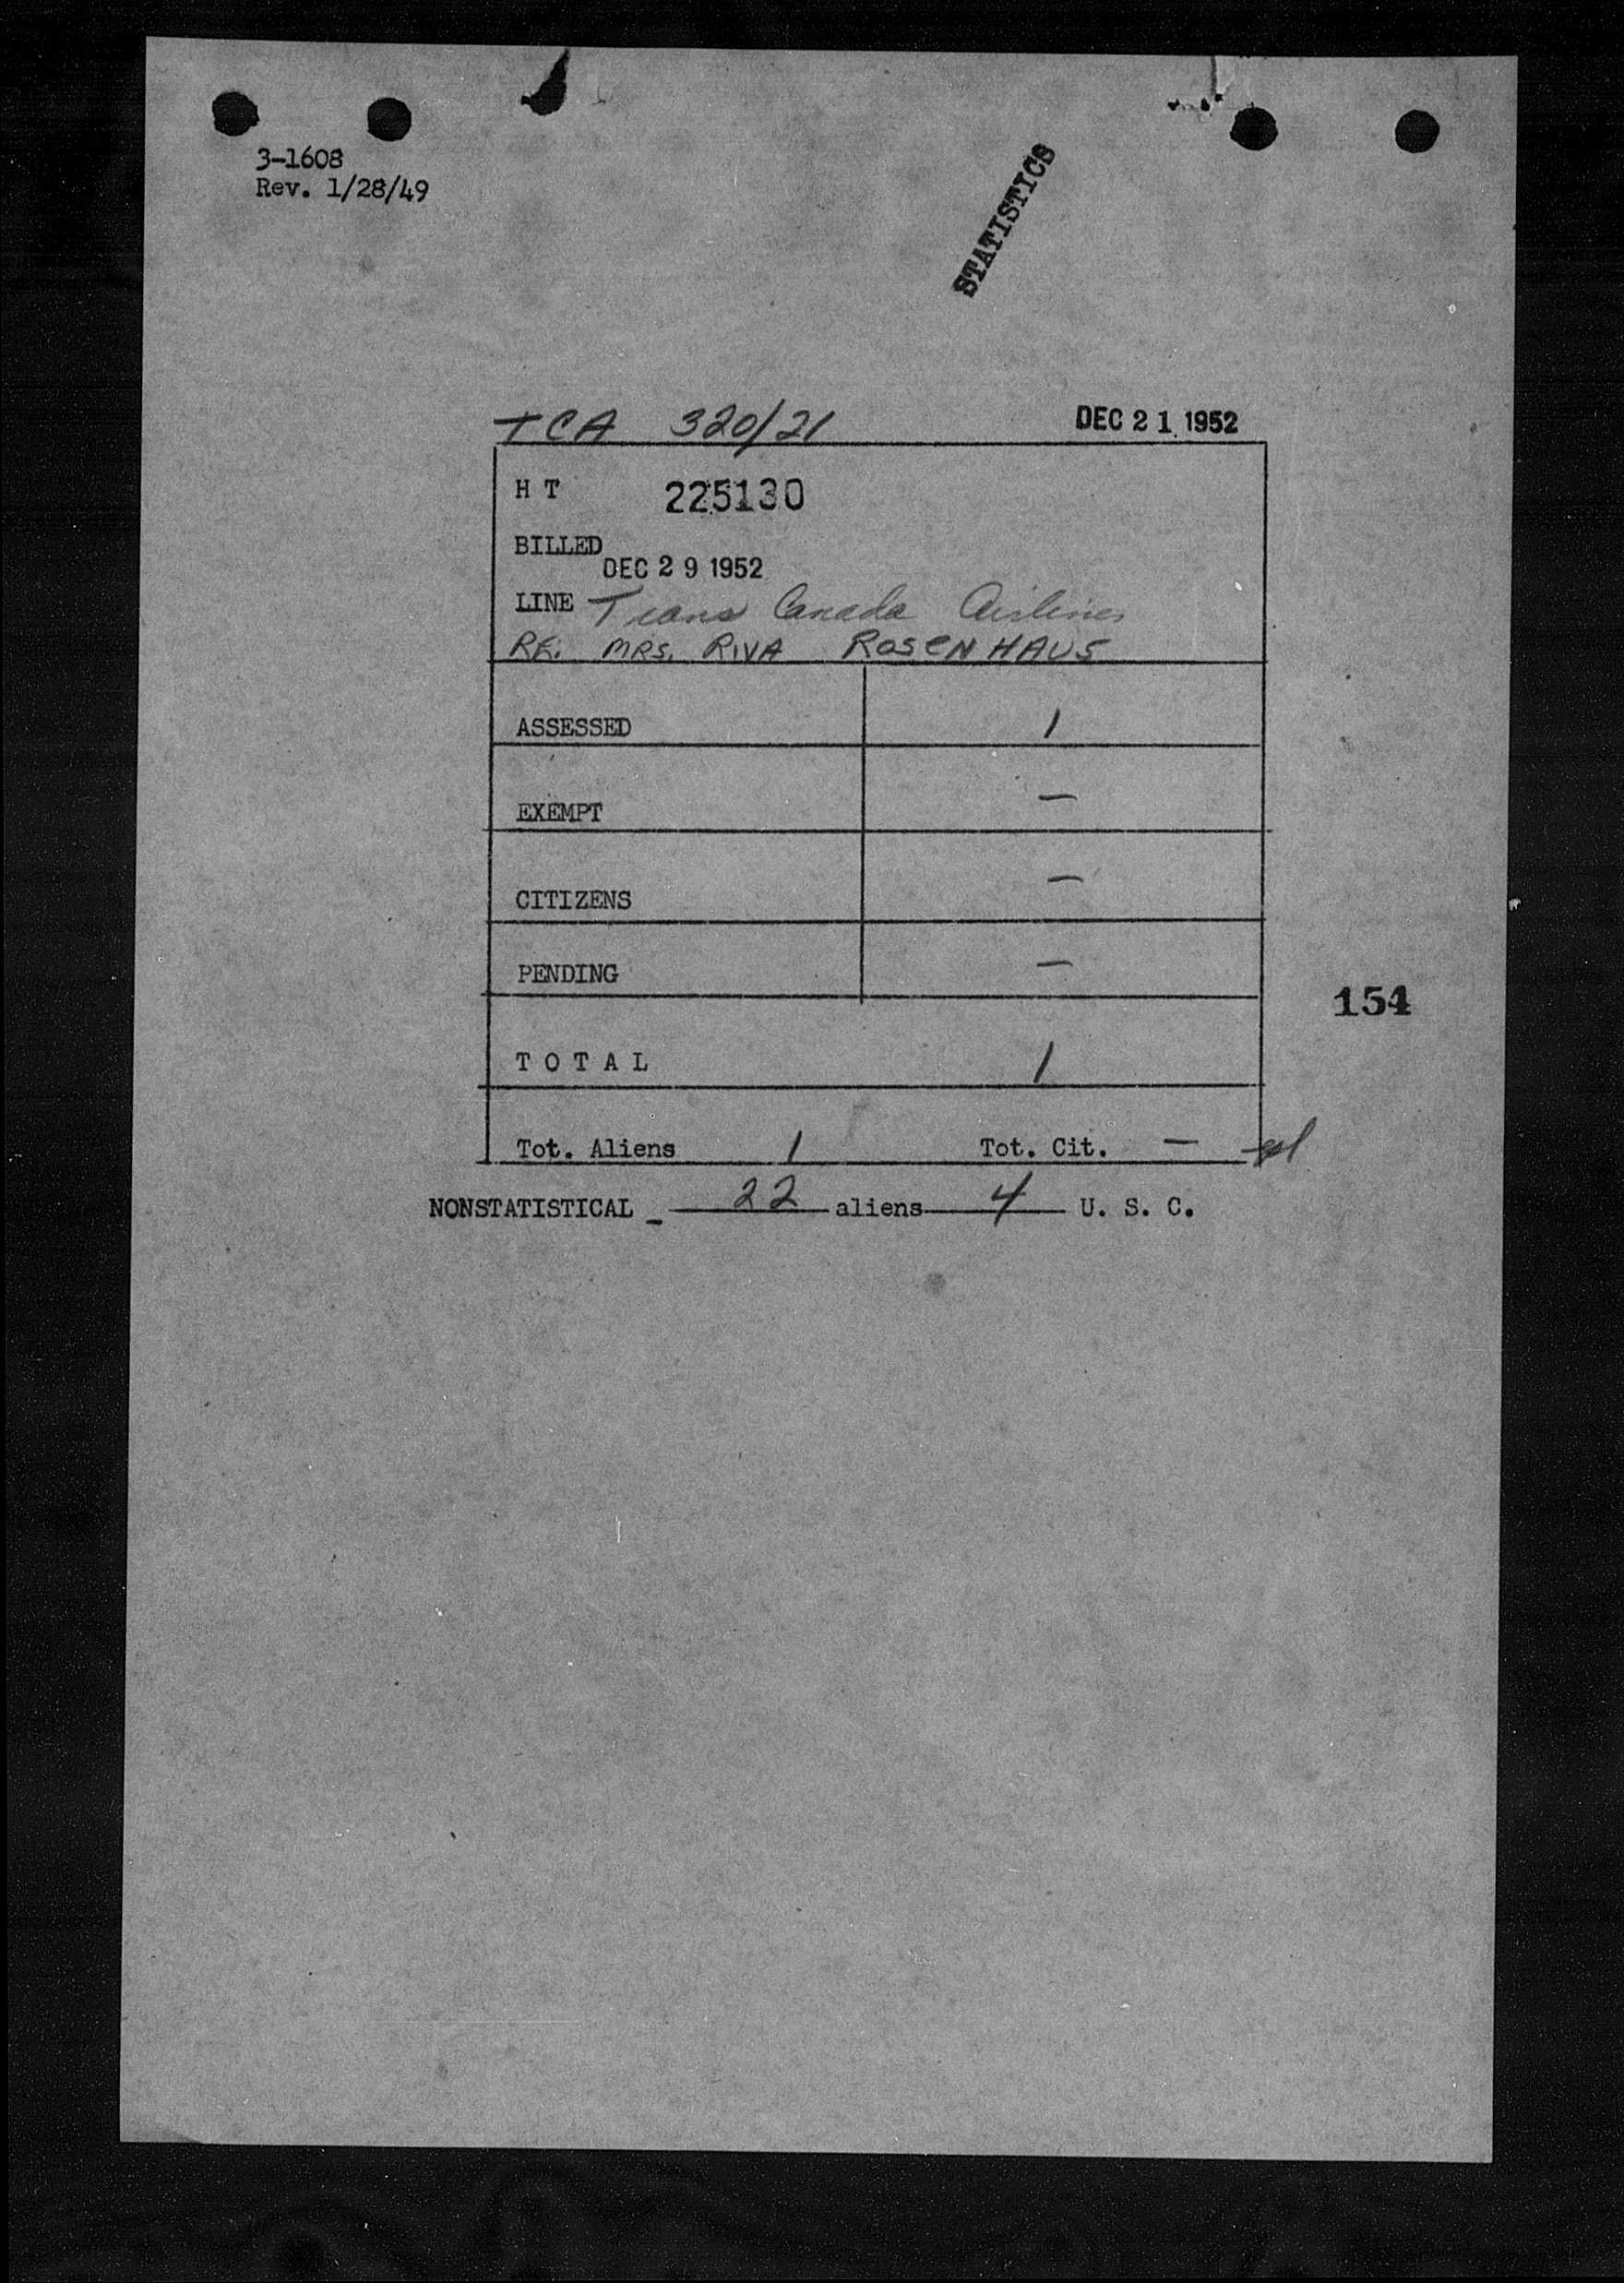 3-1608
Rev. 1/28/49
STATISTICS
TCA 320/21 DEC 21 1952
H T 225130
BILLED
DEC 29 1952
LINE Trans Canada Airlines
RE. MRS. RIVA ROSENHAUS
ASSESSED 1
EXEMPT —
CITIZENS —
PENDING —
154
T O T A L 1
Tot. Aliens 1 Tot. Cit. —
NONSTATISTICAL - 22 aliens 4 U. S. C.